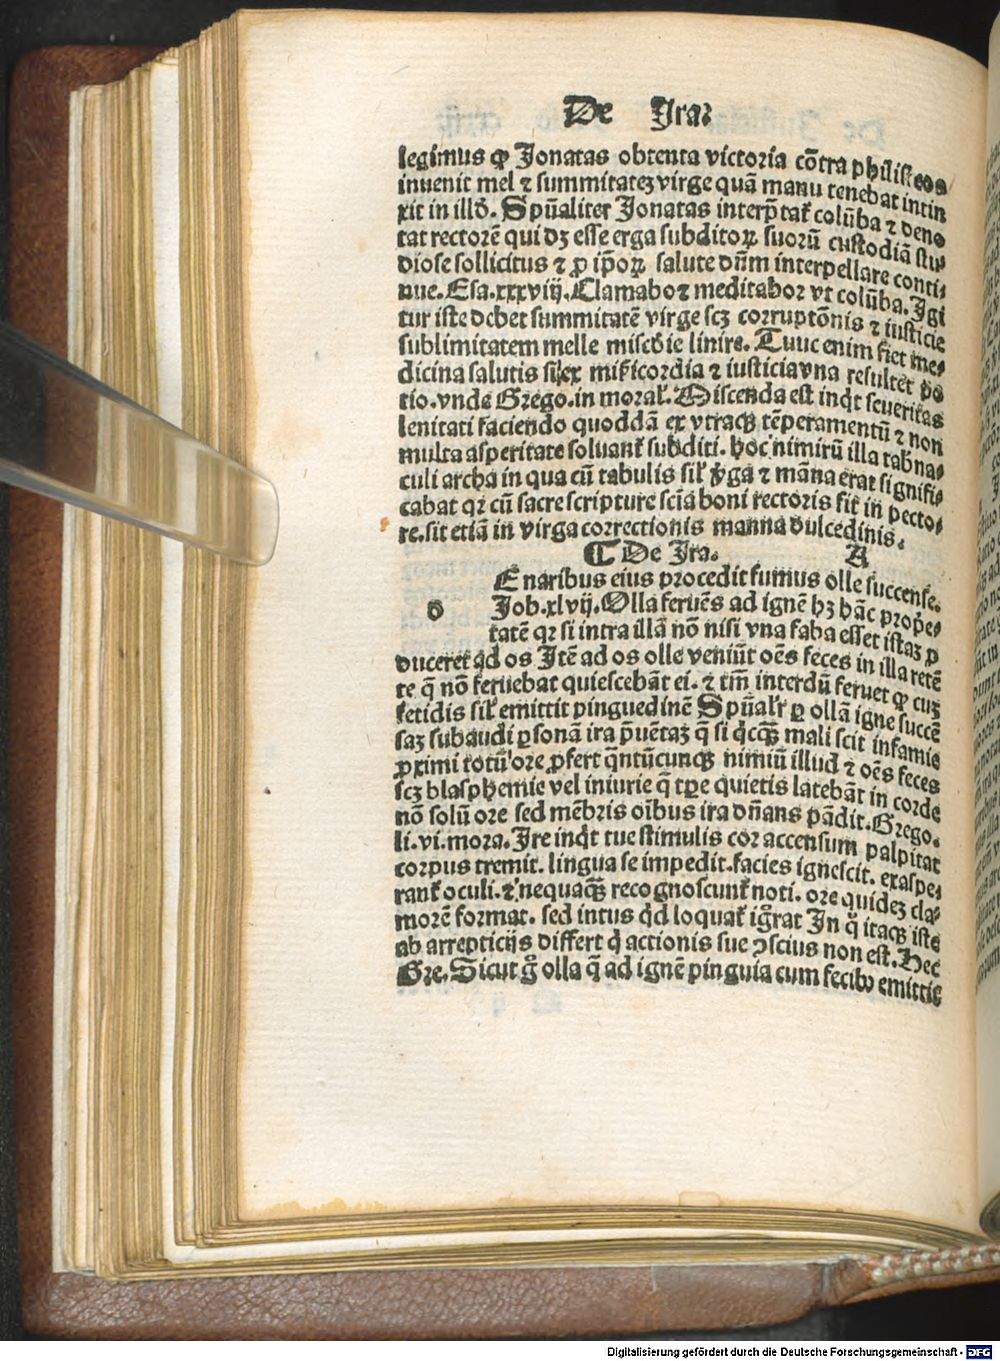 De Ira
legimus ꝙ Jonatas obtenta victoria cōtra philisteos
inuenit mel ⁊ summitateꝫ virge quā manu tenebat intin
xit in illo. Spūaliter Jonatas interp̄tat̄ colūba ⁊ deno
tat rectorē qui dꝫ esse erga subditoꝝ suoꝝ custodiā stu⸗
diose sollicitus ⁊ ꝓ ip̄oꝝ salute dn̄m interpellare conti⸗
nue. Esa. xxxviij. Clamabo ⁊ meditabor vt colūba. Igi
tur iste debet summitatē virge scꝫ corruptōnis ⁊ iusticie
sublimitatem melle miscd̄ie linire. Tuuc enim fiet me⸗
dicina salutis sil̄ ex mīcordia ⁊ iusticia vna resultet po
tio. vnde Grego. in moral̄. Miscenda est inqt̄ seueritas
lenitati faciendo quoddā ex vtraqꝫ tēperamentū ⁊ non
multa asperitate soluant̄ subditi. hoc nimirū illa tab̄na⸗
culi archa in qua cū tabulis sil̄ v̄ga ⁊ māna erat signifi⸗
cabat qꝛ cū sacre scripture scīa boni rectoris sit̄ in pecto⸗
re. sit etiā in virga correctionis manna dulcedinis.
¶ De Ira. A
d E naribus eius procedit fumus olle succense.
Job. xlvij. Olla feruēs ad ignē hꝫ hāc prop̄e⸗
tatē qꝛ si intra illā nō nisi vna faba esset istaꝫ ꝓ
duceret ad os Itē ad os olle veniūt oēs feces in illa retē
te q̄ nō feruebat quiescebāt ei. ⁊ tm̄ interdū feruet ꝙ cuꝫ
fetidis sil̄ emittit pinguedinē Spūal̄r ꝑ ollā igne succē
saꝫ subaudi ꝑsonā ira p̄uētaꝫ q̄ si qͥcqͣꝫ mali scit infamie
ꝓximi totū ore ꝓfert q̄ntūcunqꝫ nimiū illud ⁊ oēs feces
scꝫ blasphemie vel iniurie q̄ tꝑe quietis latebāt in corde
nō solū ore sed mēbris oībus ira dn̄ans pādit. Grego.
li. vi. mora. Ire inqt̄ tue stimulis cor accensum palpitat
corpus tremit. lingua se impedit. facies ignescit. exaspe⸗
rant̄ oculi. ⁊ nequaqͣꝫ recognoscunt̄ noti. ore quideꝫ cla⸗
morē format. sed intus qd̄ loquat̄ ig̅rat In q̄ itaqꝫ iste
ab arrepticijs differt q̄ actionis sue ꝯscius non est. Hec
Gre. Sicut g̊ olla q̄ ad ignē pinguia cum fecibꝰ emittit
Digitalisierung gefördert durch die Deutsche Forschungsgemeinschaft - DFG